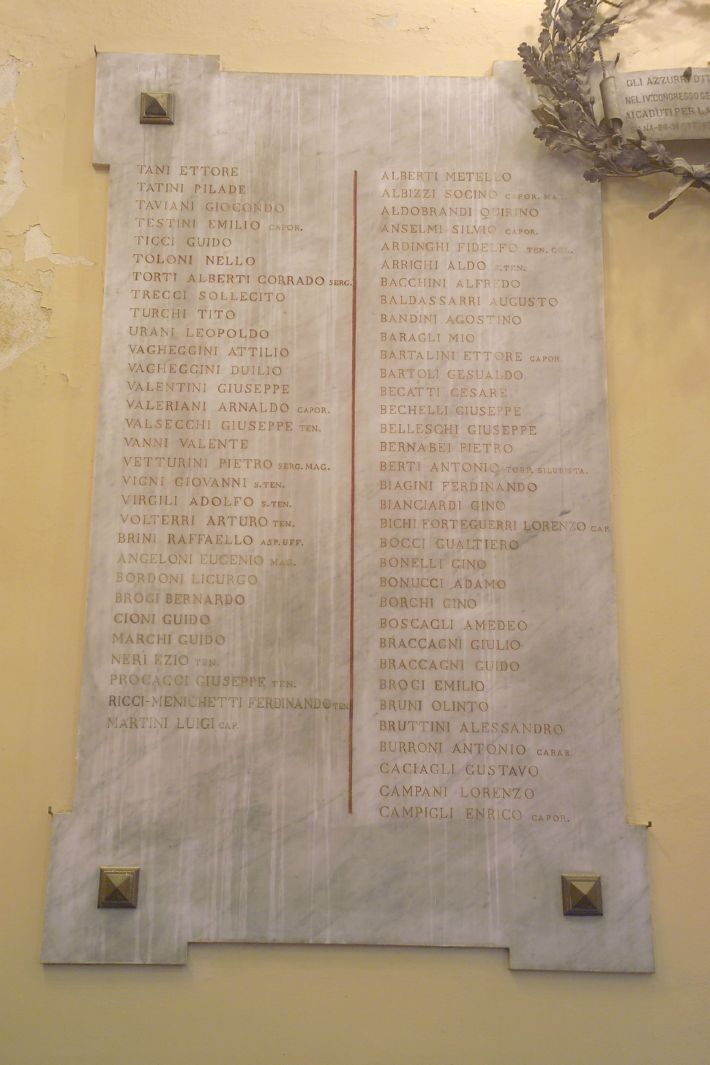 TANI ETTORE
TATINI PILADE
TAVIANI GIOCONDO
TESTINI EMILIO CAPOR.
TICCI GUIDO
TOLONI NELLO
TORTI ALBERTI CORRADO SERG.
TRECCI SOLLECITO
TURCHI TITO
URANI LEOPOLDO
VAGHEGGINI ATTILIO
VAGHEGGINI DUILIO
VALENTINI GIUSEPPE
VALERIANI ARNALDO CAPOR.
VALSECCHI GIUSEPPE TEN.
VANNI VALENTE
VETTURINI PIETRO SERG. MAG.
VIGNI GIOVANNI S.TEN.
VIRGILI ADOLFO S.TEN.
VOLTERRI ARTURO TEN.
BRINI RAFFAELLO ASP. UFF.
ANGELONI EUGENIO MAG.
BORDONI LICURGO
BROGI BERNARDO
CIONI GUIDO
MARCHI GUIDO
NERI EZIO TEN.
PROCACCI GIUSEPPE TEN.
RICCI-MENICHETTI FERDINANDO TEN.
MARTINI LUIGI CAP.
ALBERTI METELLO
ALBIZZI SOCINO CAPOR. MAG.
ALDOBRANDI QUIRINO
ANSELMI SILVIO CAPOR.
ARDINGHI FIDELFO TEN. COL.
ARRIGHI ALDO S.TEN.
BACCHINI ALFREDO
BALDASSARRI AUGUSTO
BANDINI AGOSTINO
BARAGLI MIO
BARTALINI ETTORE CAPOR.
BARTOLI GESUALDO
BECATTI CESARE
BECHELLI GIUSEPPE
BELLESCHI GIUSEPPE
BERNABEI PIETRO
BERTI ANTONIO TORP. SILURISTA.
BIAGINI FERDINANDO
BIANCIARDI GINO
BICHI FORTEGUERRI LORENZO CAP.
BOCCI GUALTIERO
BONELLI GINO
BONUCCI ADAMO
BORGHI GINO
BOSCAGLI AMEDEO
BRACCAGNI GIULIO
BRACCAGNI GUIDO
BROGI EMILIO
BRUNI OLINTO
BRUTTINI ALESSANDRO
BURRONI ANTONIO CARAB.
CACIAGLI GUSTAVO
CAMPANI LORENZO
CAMPIGLI ENRICO CAPOR.
GLI AZZURRI
NEL IV° CONGRESSO
AI CADUTI PER LA